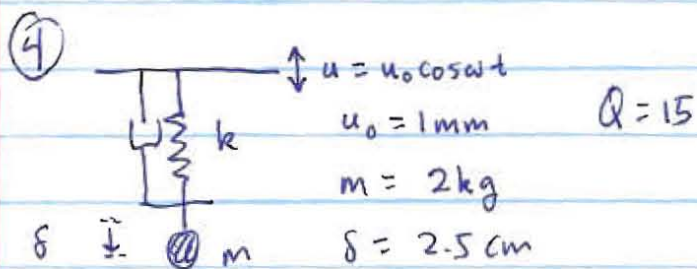 ④
u = u₀ cos ωt
u₀ = 1mm
Q = 15
k
m = 2kg
δ
m
δ = 2.5 cm